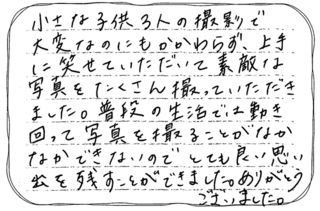 小さな子供3人の撮影で
大変なのにもかかわらず、上手
に笑せていただいて素敵な
写真をたくさん撮っていただき
ました。普段の生活では動き
回って写真を撮ることがなか
なかできないのでとても良い思い
出を残すことができました。ありがとう
ございました。